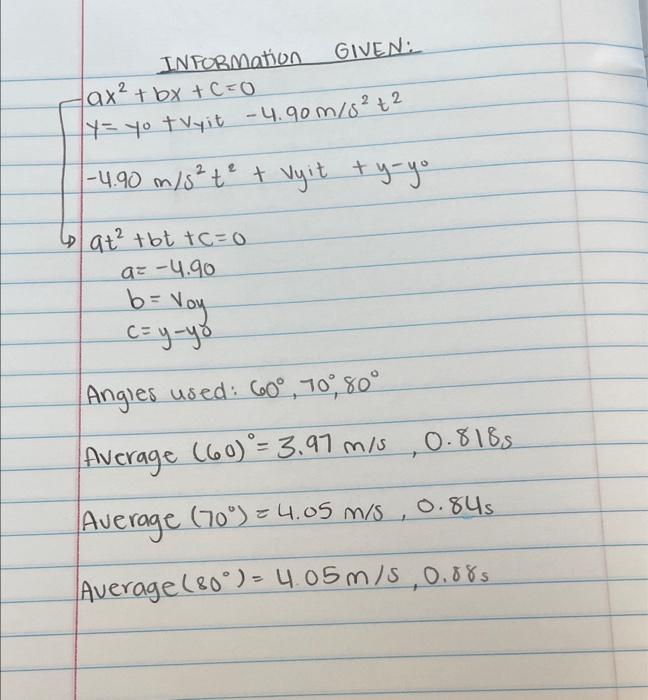 INFORMATION GIVEN:
ax² + bx + C = 0
y = yo + Vyit - 4.90 m/s² t²
-4.90 m/s² t² + Vyit + y-yo
at² + bt + C = 0
a = -4.90
b = Voy
C = y-yo
Angles used: 60°, 70°, 80°
Average (60)° = 3.97 m/s , 0.818s
Average (70°) = 4.05 m/s , 0.84s
Average (80°) = 4.05 m/s , 0.88s